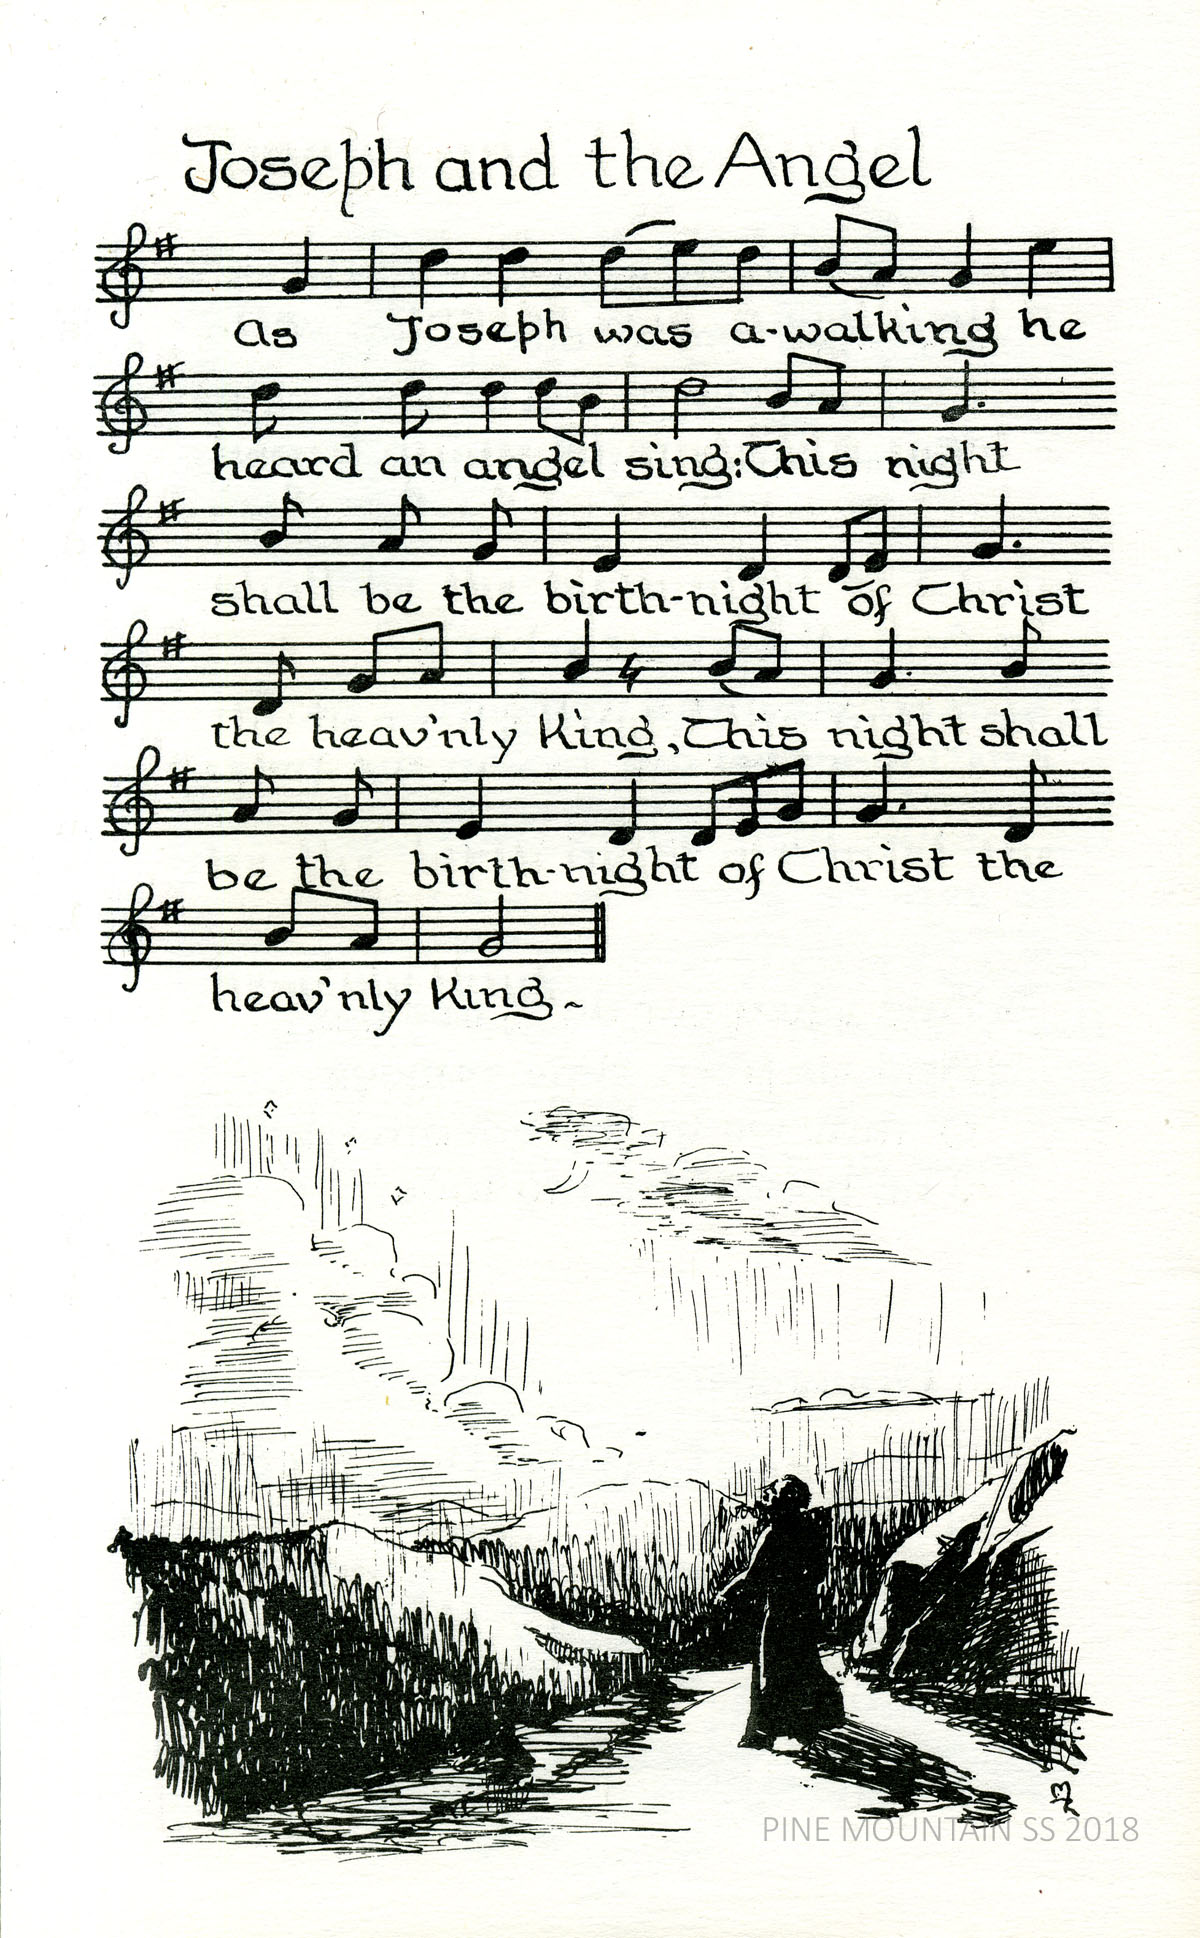 Joseph and the Angel
As Joseph was a-walking he
heard an angel sing: This night
shall be the birth-night of Christ
the heav'nly King, This night shall
be the birth-night of Christ the
heav'nly King ~
PINE MOUNTAIN SS 2018